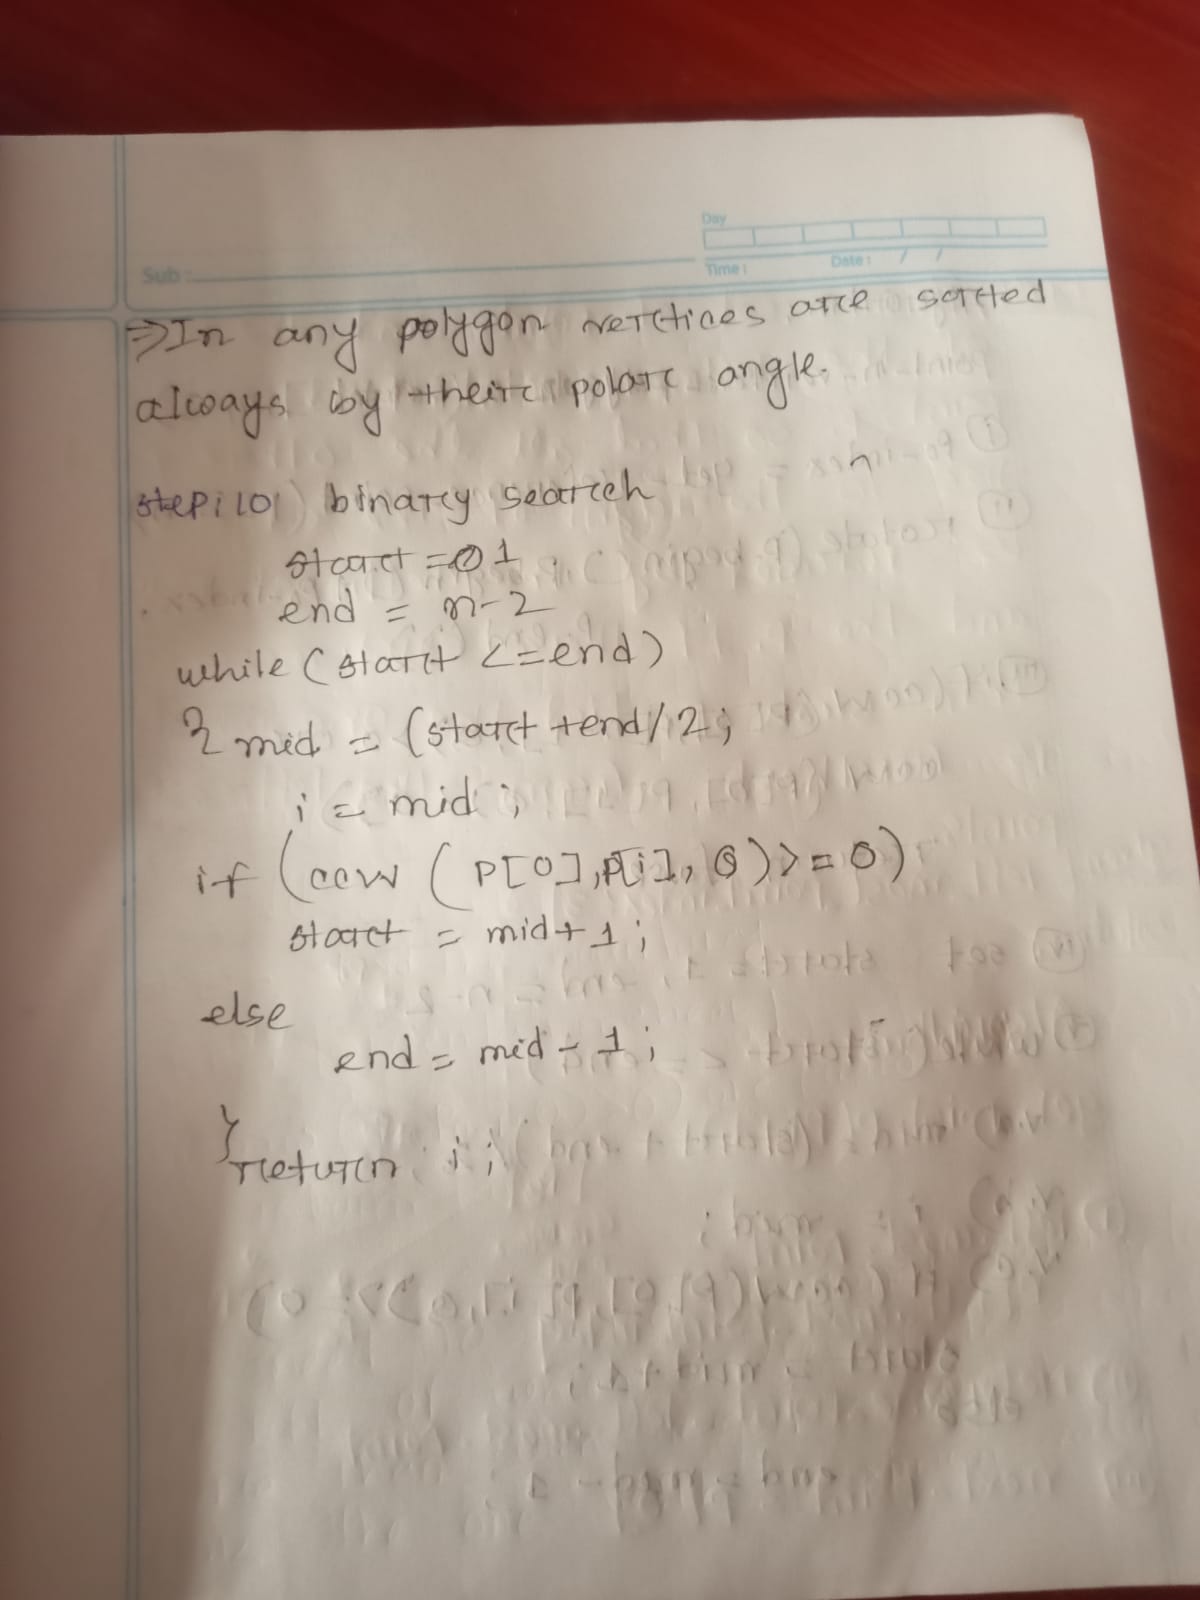 Day
Sub:
Time:
Date: / /
⇒In any polygon vertices are sorted
always by their polar angle.
binary search
start = 1
end = n-2
while (start <=end)
{ mid = (start +end/2;
i = mid ;
if (ccw ( P[0],P[i], Q)>=0)
start = mid+1;
else
end = mid - 1;
}
return i;